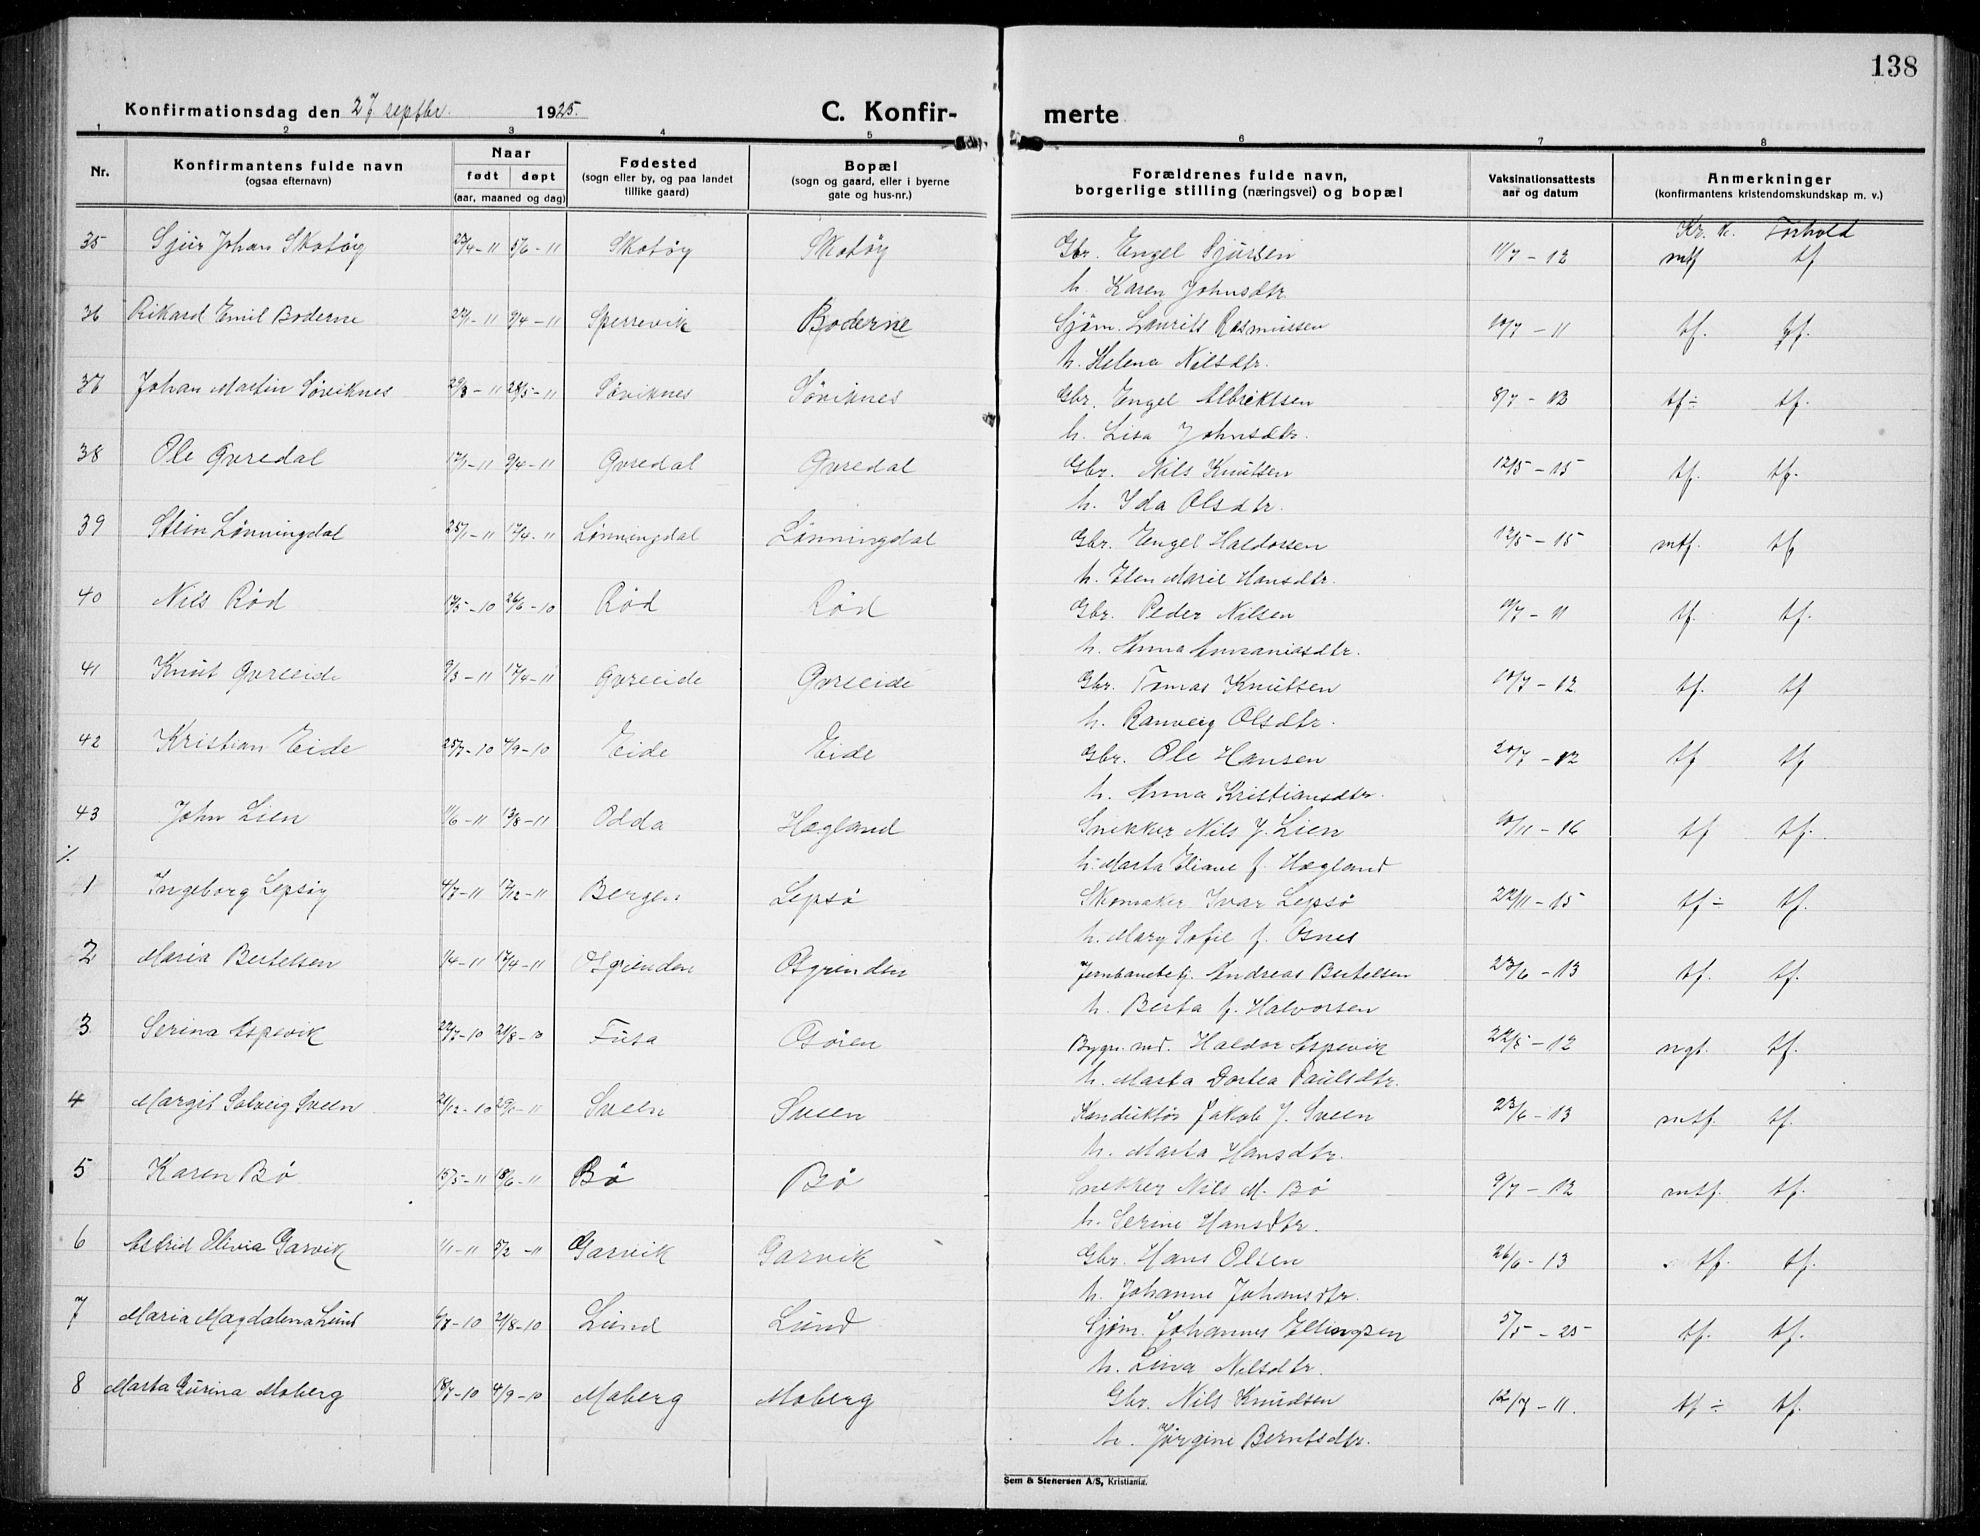 138
Konfirmationsdag den 27 septbr. 1925. C. Konfirmerte
1 2 3 4 5 6 7 8
Nr. Konfirmantens fulde navn (ogsaa efternavn) Naar født døpt (aar, maaned og dag) Fødested (sogn eller by, og paa landet tillike gaard) Bopæl (sogn og gaard, eller i byerne gate og hus-nr.) Forældrenes fulde navn, borgerlige stilling (næringsvei) og bopæl Vaksinationsattests aar og datum Anmerkninger (konfirmantens kristendomskundskap m. v.)
Kr. k. Forhold
35 Sjur Johan Skotøy 23/4-11 5/6-11 Skotøy Skotøy Gbr. Engel Sjursen 11/7-12 mtf tf
h. Karen Johnsdtr.
36 Rikard Emil Boderne 9/4-11 Sperrevik Boderne Sjøm. Laurits Rasmussen 10/7-11 tf.
h. Helena Nilsdtr.
37 Johan Martin Søviknes 29/3-11 28/5-11 Søviknes Søviknes Gbr. Engel Albriktsen 8/7-13 tf÷ tf.
h. Lisa Johnsdtr.
38 Ole Øvredal 17/1-11 9/4-11 Øvredal Øvredal Gbr. Nils Knutsen 12/5-15 tf. tf.
h. Ida Olsdtr.
39 Stein Lønningdal 25/1-11 17/4-11 Lønningdal Lønningdal Gbr. Engel Haldorsen 12/5-15 mtf. tf
h. Elen Marie Hansdtr.
40 Nils Rød 17/5-10 26/6-10 Rød Rød Gbr. Peder Nilsen 10/7-11 tf. tf.
h. Anna Annaniasdtr.
41 Knut Øvreeide 9/3-11 17/4-11 Øvreeide Øvreeide Gbr. Tomas Knutsen 10/7-12 tf. tf
h. Ranveig Olsdtr.
42 Kristian Eide 25/7-10 4/9-10 Eide Eide Gbr. Ole Hansen 20/7-12 tf tf
h. Anna Kristiansdtr.
43 John Lien 1/6-11 13/8-11 Odda Hægland Snekker Nils J. Lien 10/11-16 tf tf.
h. Marta Eliane f. Hægland
1 Ingeborg Lepsøy 4/7-11 17/12-11 Bergen Lepsø Skomaker Ivar Lepsø 22/11-15 tf÷ tf.
h. Mary Sofie f. Osnes
2 Maria Bertelsen 1/4-11 17/4-11 Osgrinden Osgrinden Jernbanebetj. Andreas Bertelsen 23/6-13 tf. tf.
h. Berta f. Halvorsen
3 Serina Espevik 22/7-10 21/8-10 Fusa Osøren Bygn. md. Haldor Espevik 22/5-12 mgt. tf.
h. Marta Dortea Paulsdtr.
4 Margit Solveig Sveen 21/12-10 29/1-11 Sveen Sveen Konduktør Jakob J. Sveen 23/6-13 mtf. tf.
h. Marta Hansdtr.
5 Karen Bø 15/5-11 18/6-11 Bø Bø Snekker Nils M. Bø 9/7-12 mtf. tf.
h. Serine Hansdtr.
6 Astrid Olivia Garvik 1/1-11 5/2-11 Garvik Garvik Gbr. Hans Olsen 26/6-13 tf. tf.
h. Johanne Johansdtr.
7 Maria Magdalena Lund 6/7-10 21/8-10 Lund Lund Sjøm. Johannes Ellingsen 5/5-25 tf. tf.
h. Lina Nilsdtr.
8 Marta Gurina Moberg 18/7-10 4/9-10 Moberg Moberg Gbr. Nils Knudsen 12/7-11. tf÷ tf.
h. Jørgine Berntsdtr.
Sem & Stenersen A/S, Kristiania.